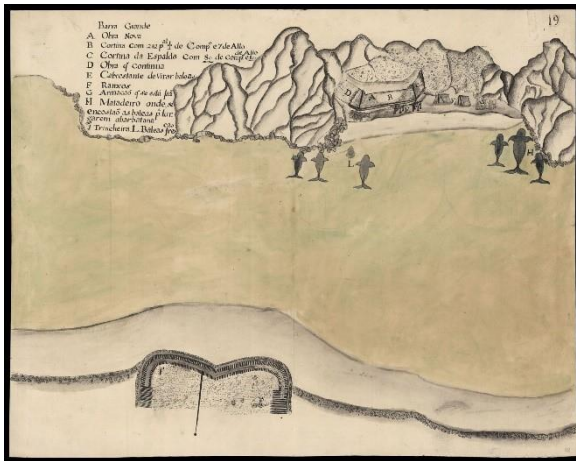 19
Barra Grande
A Obra Nova
B Cortina com 212 p.al de Comp.º e 7 de Alto
C Cortina da Espalda com 80 de comp.
de Alto
D Obra q continua
E Cabrestante de virar baleas
F Ranxos
G Armacaõ q se está
H Matadeiro onde se
encostaõ as baleas p.ª lar
garem abarbatana
I Trincheira L Baleas
D A B
L
H
I